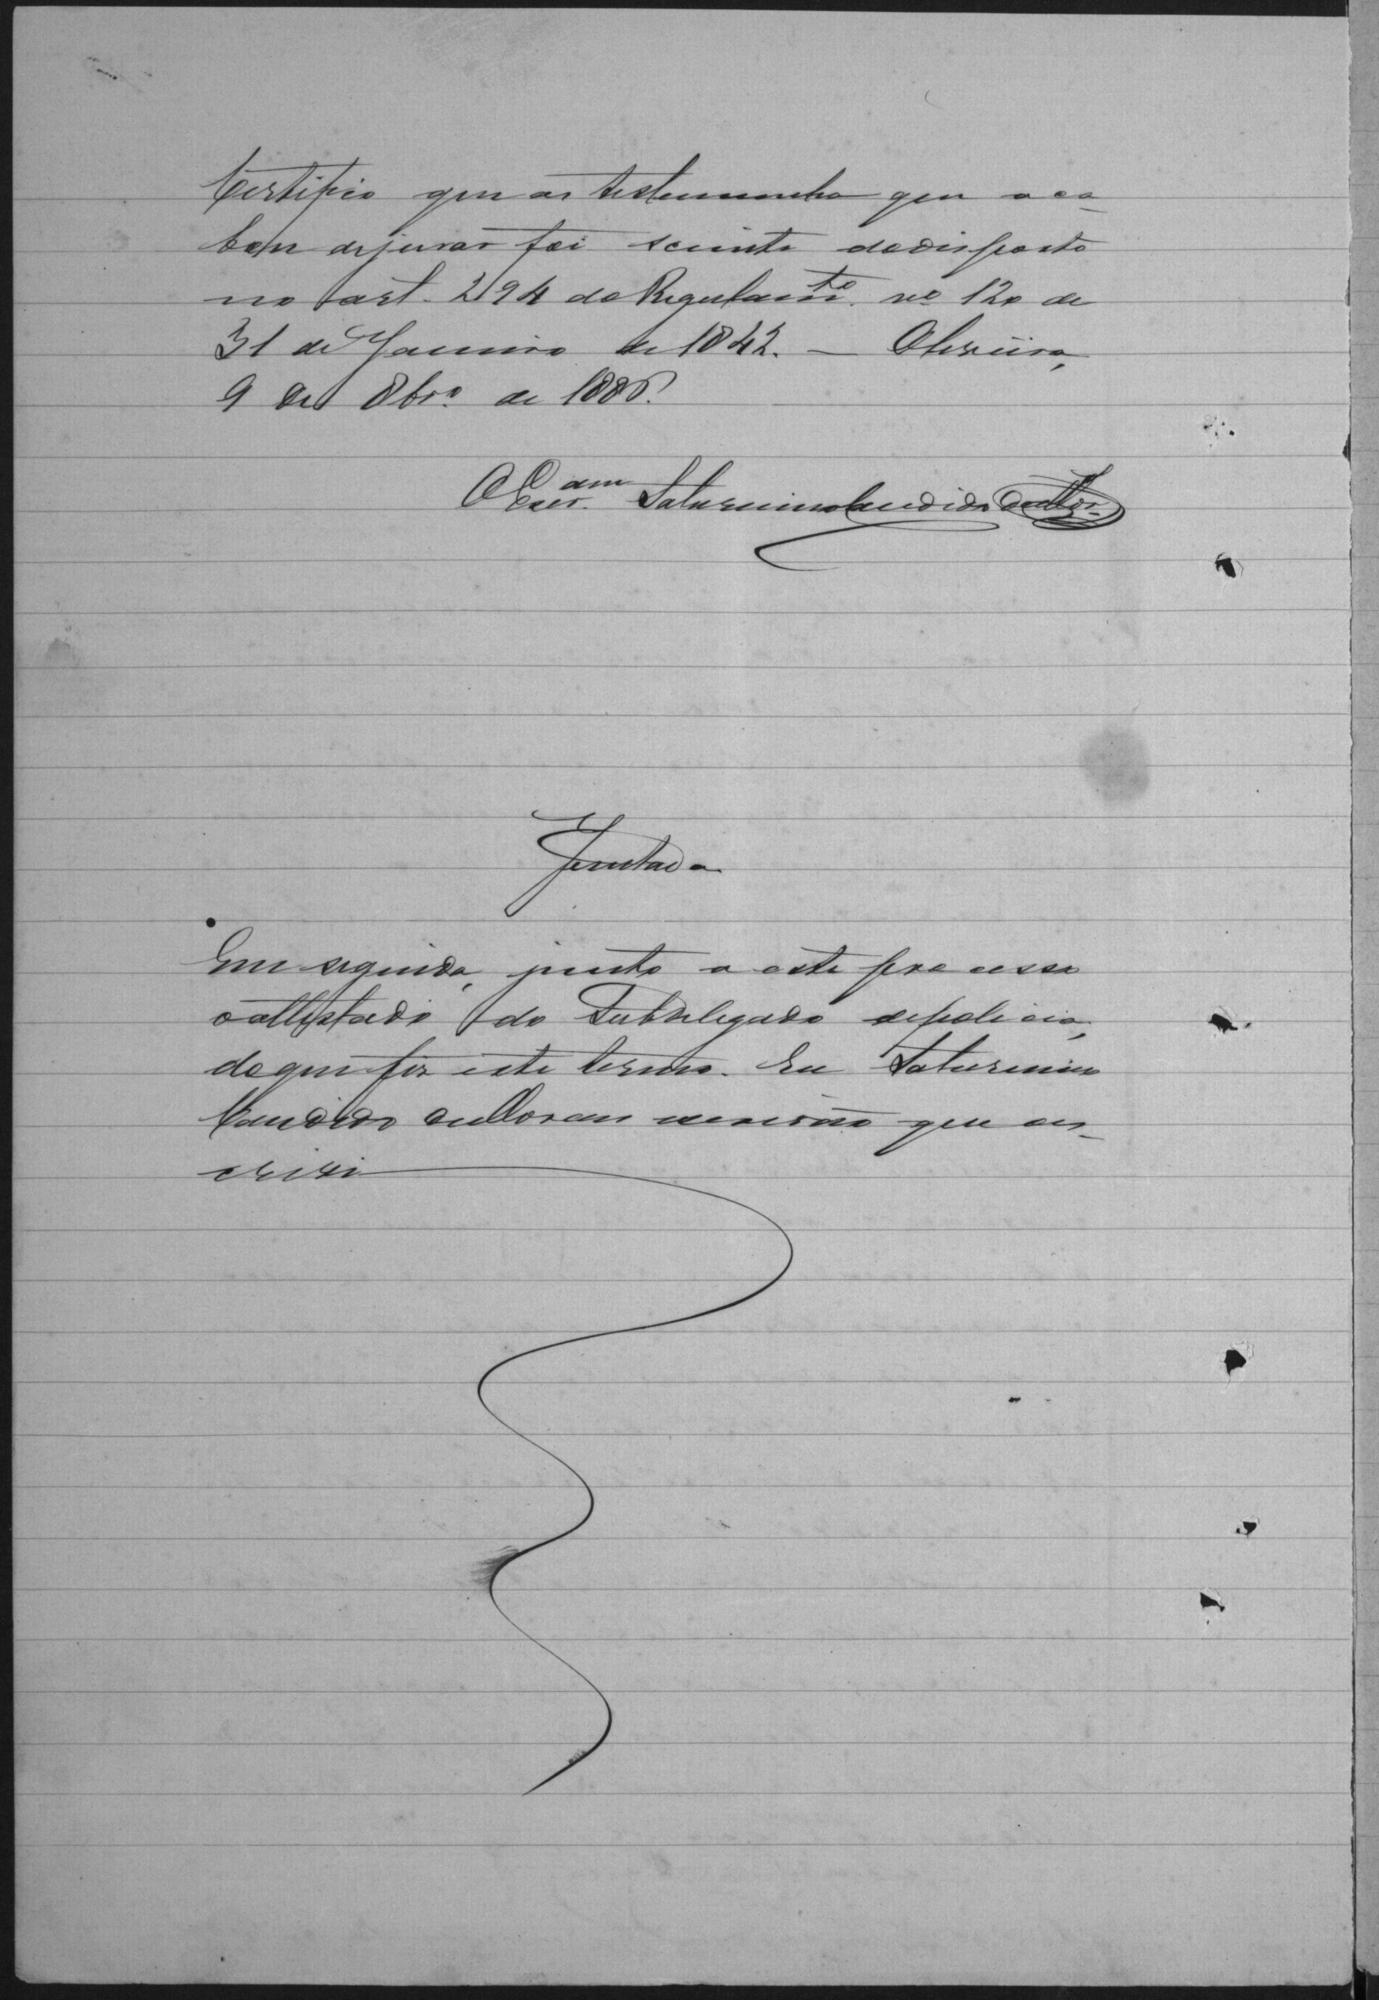 Certifico que as testemunha que aca-
bam dejurar foi sciente dodisposto
no art. 294 do Regulam.to nº 120 de
31 de Janeiro de 1842. — Oliveira,
9 de 8br.º de 1886.
O Escr.am Saturnino Candido
Juntada
Em seguida, junto a este processo
oattestado do Subdelegado depolicia,
doque fiz este termo. Eu Saturnino
Candido escrivão que es-
crivi